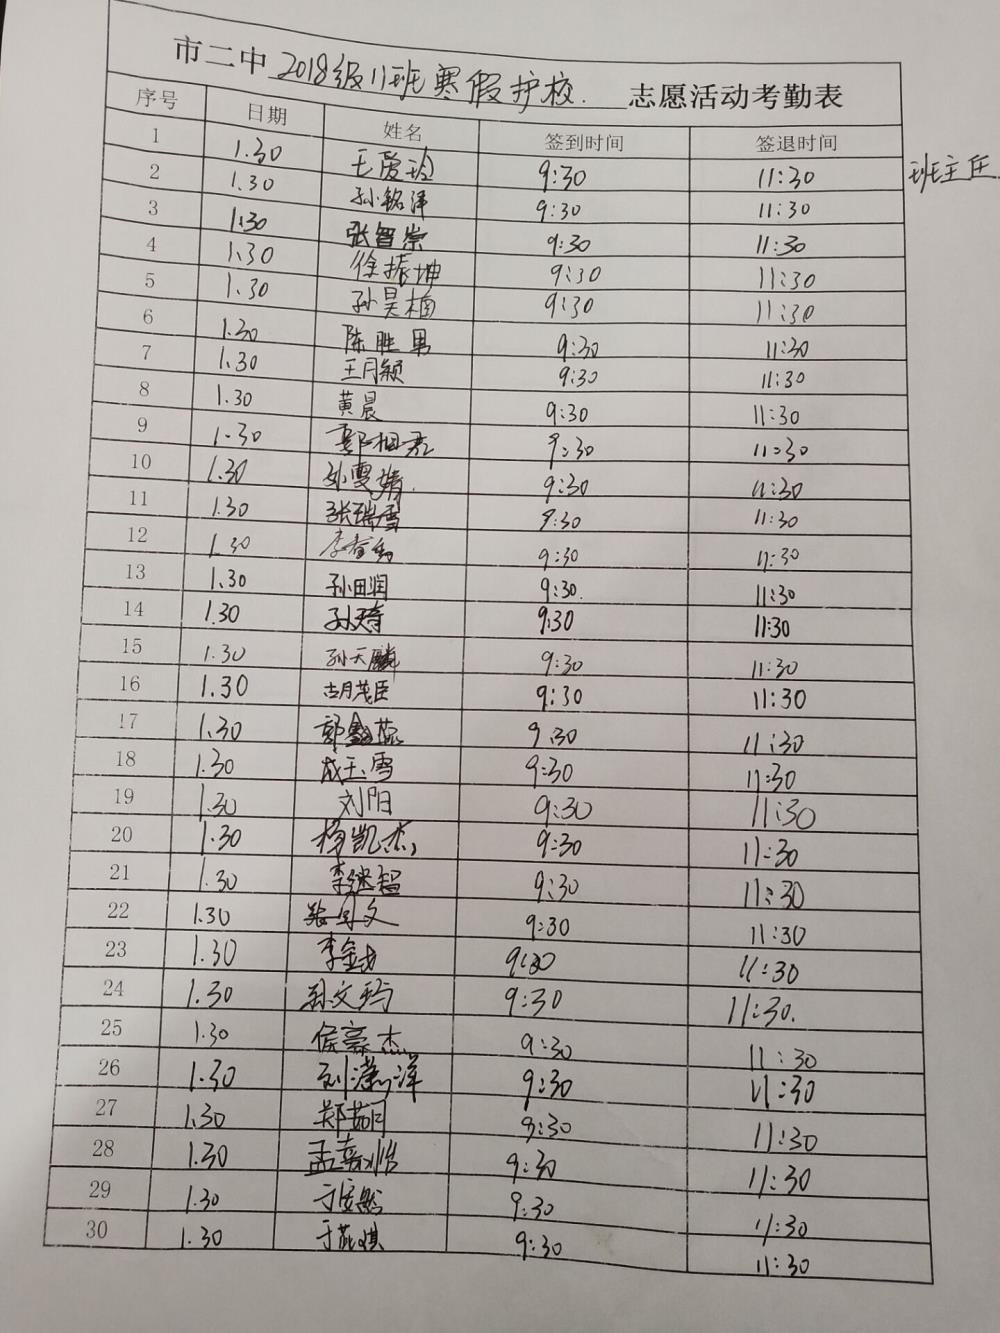 市二中 2018级11班寒假护校. 志愿活动考勤表
序号 日期 姓名 签到时间 签退时间
1 1.30 王爱玲 9:30 11:30 班主任
2 1.30 孙铭泽 9:30 11:30
3 1.30 张智崇 9:30 11:30
4 1.30 徐振坤 9:30 11:30
5 1.30 孙昊楠 9:30 11:30
6 1.30 陈胜男 9:30 11:30
7 1.30 王月颖 9:30 11:30
8 1.30 黄晨 9:30 11:30
9 1.30 9:30 11:30
10 1.30 孙雯婧 9:30 11:30
11 1.30 张瑞雪 9:30 11:30
12 1.30 9:30 11:30
13 1.30 孙田润 9:30 11:30
14 1.30 9:30 11:30
15 1.30 孙天麟 9:30 11:30
16 1.30 胡茂臣 9:30 11:30
17 1.30 9:30 11:30
18 1.30 成玉雪 9:30 11:30
19 1.30 刘阳 9:30 11:30
20 1.30 杨凯杰 9:30 11:30
21 1.30 李继超 9:30 11:30
22 1.30 9:30 11:30
23 1.30 9:30 11:30
24 1.30 9:30 11:30.
25 1.30 侯豪杰 9:30 11:30
26 1.30 刘潇洋 9:30 11:30
27 1.30 郑茹月 9:30 11:30
28 1.30 9:30 11:30
29 1.30 9:30 11:30
30 1.30 9:30 11:30